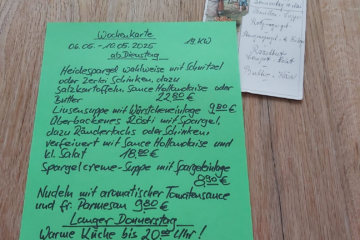 Wochenkarte
06.05. - 10.05.2025 19.KW
ab Dienstag
Heidespargel wahlweise mit Schnitzel
oder Zerlei Schinken, dazu
Salzkartoffeln, Sauce Hollandaise oder
Butter 22,80 €
Linsensuppe mit Würstcheneinlage 9,80 €
Überbackenes Rösti mit Spargel,
dazu Räucherlachs oder Schinken
verfeinert mit Sauce Hollandaise und
kl. Salat 18,80 €
Spargelcreme-Suppe mit Spargeleinlage
8,90 €
Nudeln mit aromatischer Tomatensauce
und fr. Parmesan 9,80 €
Langer Donnerstag
Warme Küche bis 20:00 Uhr!